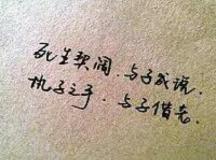 死生契阔.与子成说.
执子之手.与子偕老.